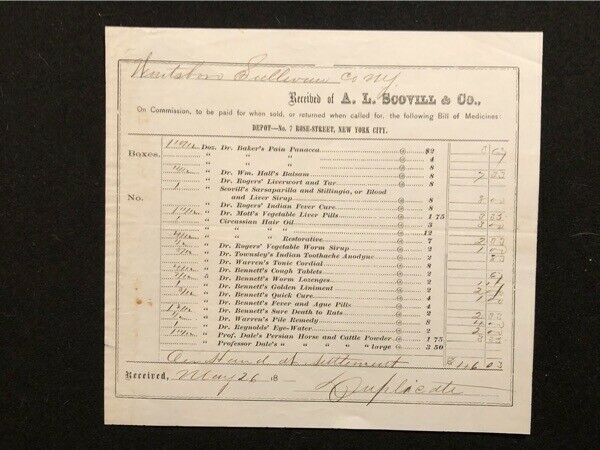 Wurtsboro Sullivan Co NY
Received of A. L. SCOVILL & CO.,
On Commission, to be paid for when sold, or returned when called for, the following Bill of Medicines:
DEPOT—No. 7 ROSE-STREET, NEW YORK CITY.
Boxes. Doz. Dr. Baker's Pain Panacea @ $2
" " " @ 4
" " " @ 8
" Dr. Wm. Hall's Balsam @ 8
" Dr. Rogers' Liverwort and Tar @ 8
" Scovill's Sarsaparilla and Stillingia, or Blood
and Liver Sirup @ 8
No. " Dr. Rogers' Indian Fever Cure @ 8
" Dr. Mott's Vegetable Liver Pills @ 1 75
" Circassian Hair Oil @ 3
" " " " @ 12
" " Restorative @ 7
" Dr. Rogers' Vegetable Worm Sirup @ 2
" Dr. Townsley's Indian Toothache Anodyne @ 2
" Dr. Warren's Tonic Cordial @ 8
" Dr. Bennett's Cough Tablets @ 2
" Dr. Bennett's Worm Lozenges @ 2
" Dr. Bennett's Golden Liniment @ 2
" Dr. Bennett's Quick Cure @ 4
" Dr. Bennett's Fever and Ague Pills @ 4
" Dr. Bennett's Sure Death to Rats @ 2
" Dr. Warren's Pile Remedy @ 8
" Dr. Reynolds' Eye-Water @ 2
" Prof. Dale's Persian Horse and Cattle Powder @ 1 75
" Professor Dale's " " " " large @ 3 50
On Hand at settlement $46 03
Received, May 26 18
Duplicate